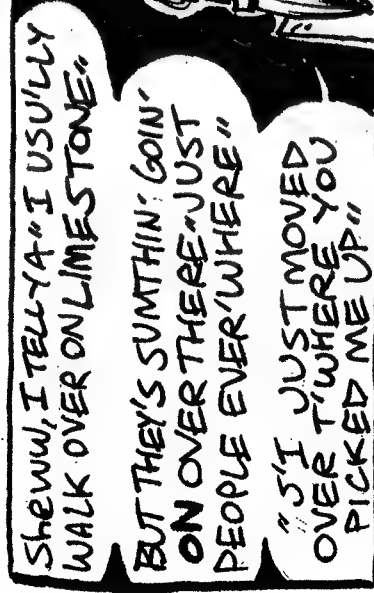 Sheww, I TELL YA "I USU'LLY
WALK OVER ON LIMESTONE"
BUT THEY'S SUMTHIN' GOIN'
ON OVER THERE "JUST
PEOPLE EVER'WHERE"
" S'I JUST MOVED
OVER T'WHERE YOU
PICKED ME UP"